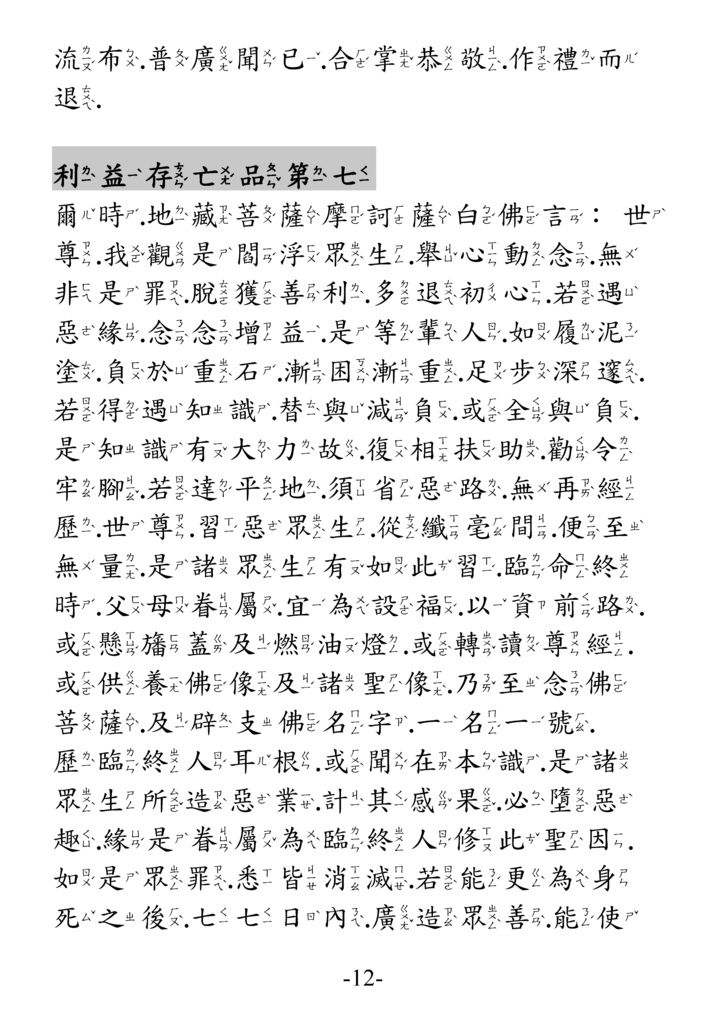 流布.普廣聞已.合掌恭敬.作禮而
退.
利益存亡品第七
爾時.地藏菩薩摩訶薩白佛言：世
尊.我觀是閻浮眾生.舉心動念.無
非是罪.脫獲善利.多退初心.若遇
惡緣.念念增益.是等輩人.如履泥
塗.負於重石.漸困漸重.足步深邃.
若得遇知識.替與減負.或全與負.
是知識有大力故.復相扶助.勸令
牢腳.若達平地.須省惡路.無再經
歷.世尊.習惡眾生.從纖毫間.便至
無量.是諸眾生有如此習.臨命終
時.父母眷屬.宜為設福.以資前路.
或懸旛蓋及燃油燈.或轉讀尊經.
或供養佛像及諸聖像.乃至念佛
菩薩.及辟支佛名字.一名一號.
歷臨終人耳根.或聞在本識.是諸
眾生所造惡業.計其感果.必墮惡
趣.緣是眷屬為臨終人修此聖因.
如是眾罪.悉皆消滅.若能更為身
死之後.七七日內.廣造眾善.能使
-12-